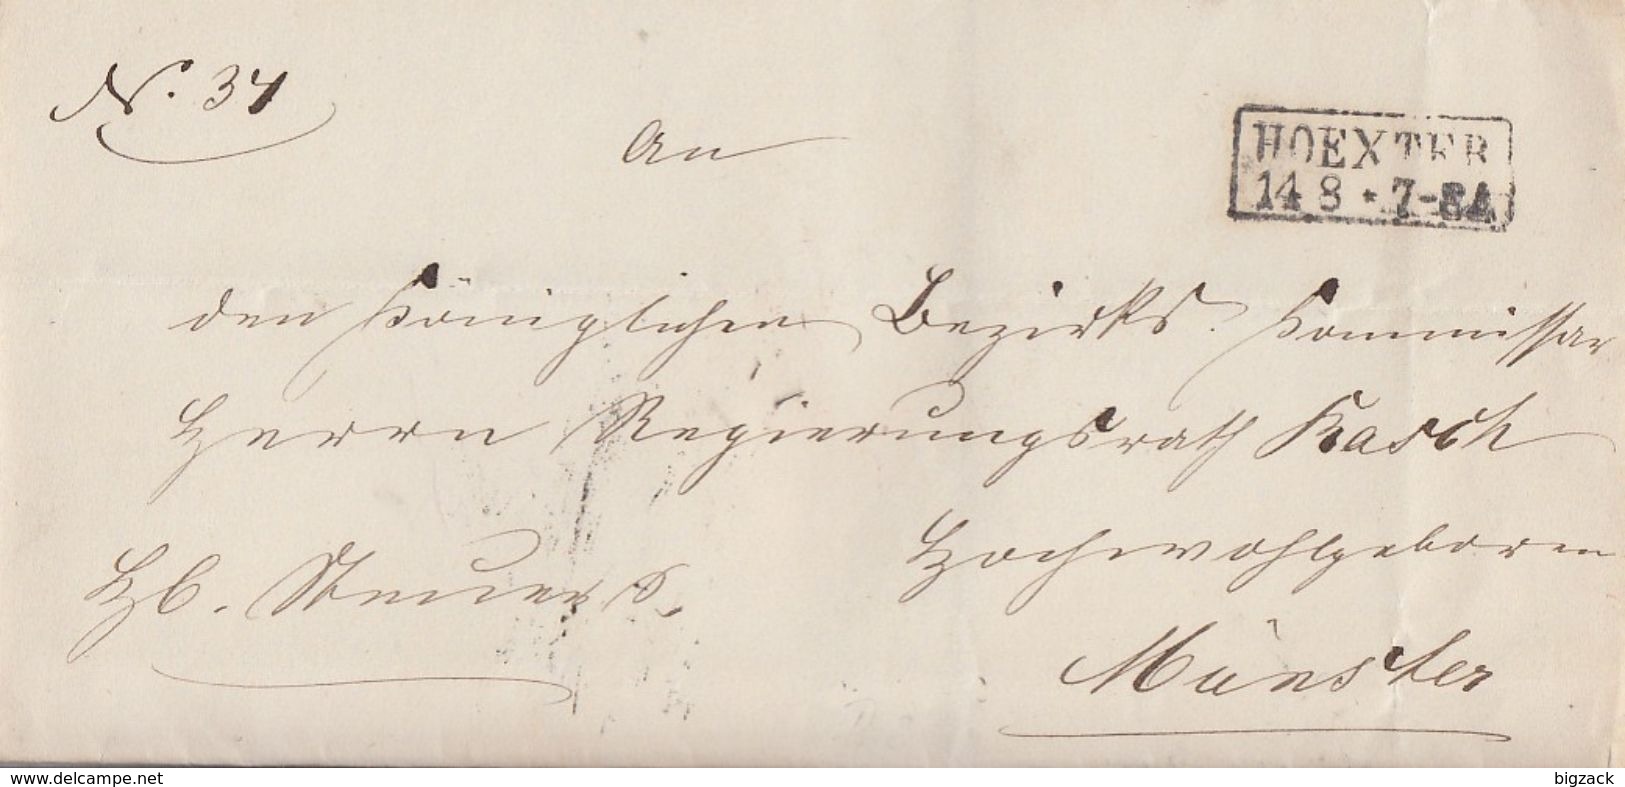 No. 34
An
HOEXTER
14 8 * 7-8A
den Königlichen Bezirks. Kommissar
Herrn Regierungsrath Kasch
Hochwohlgeboren
Hb. Steuer S.
Münster
www.delcampe.net
bigzack